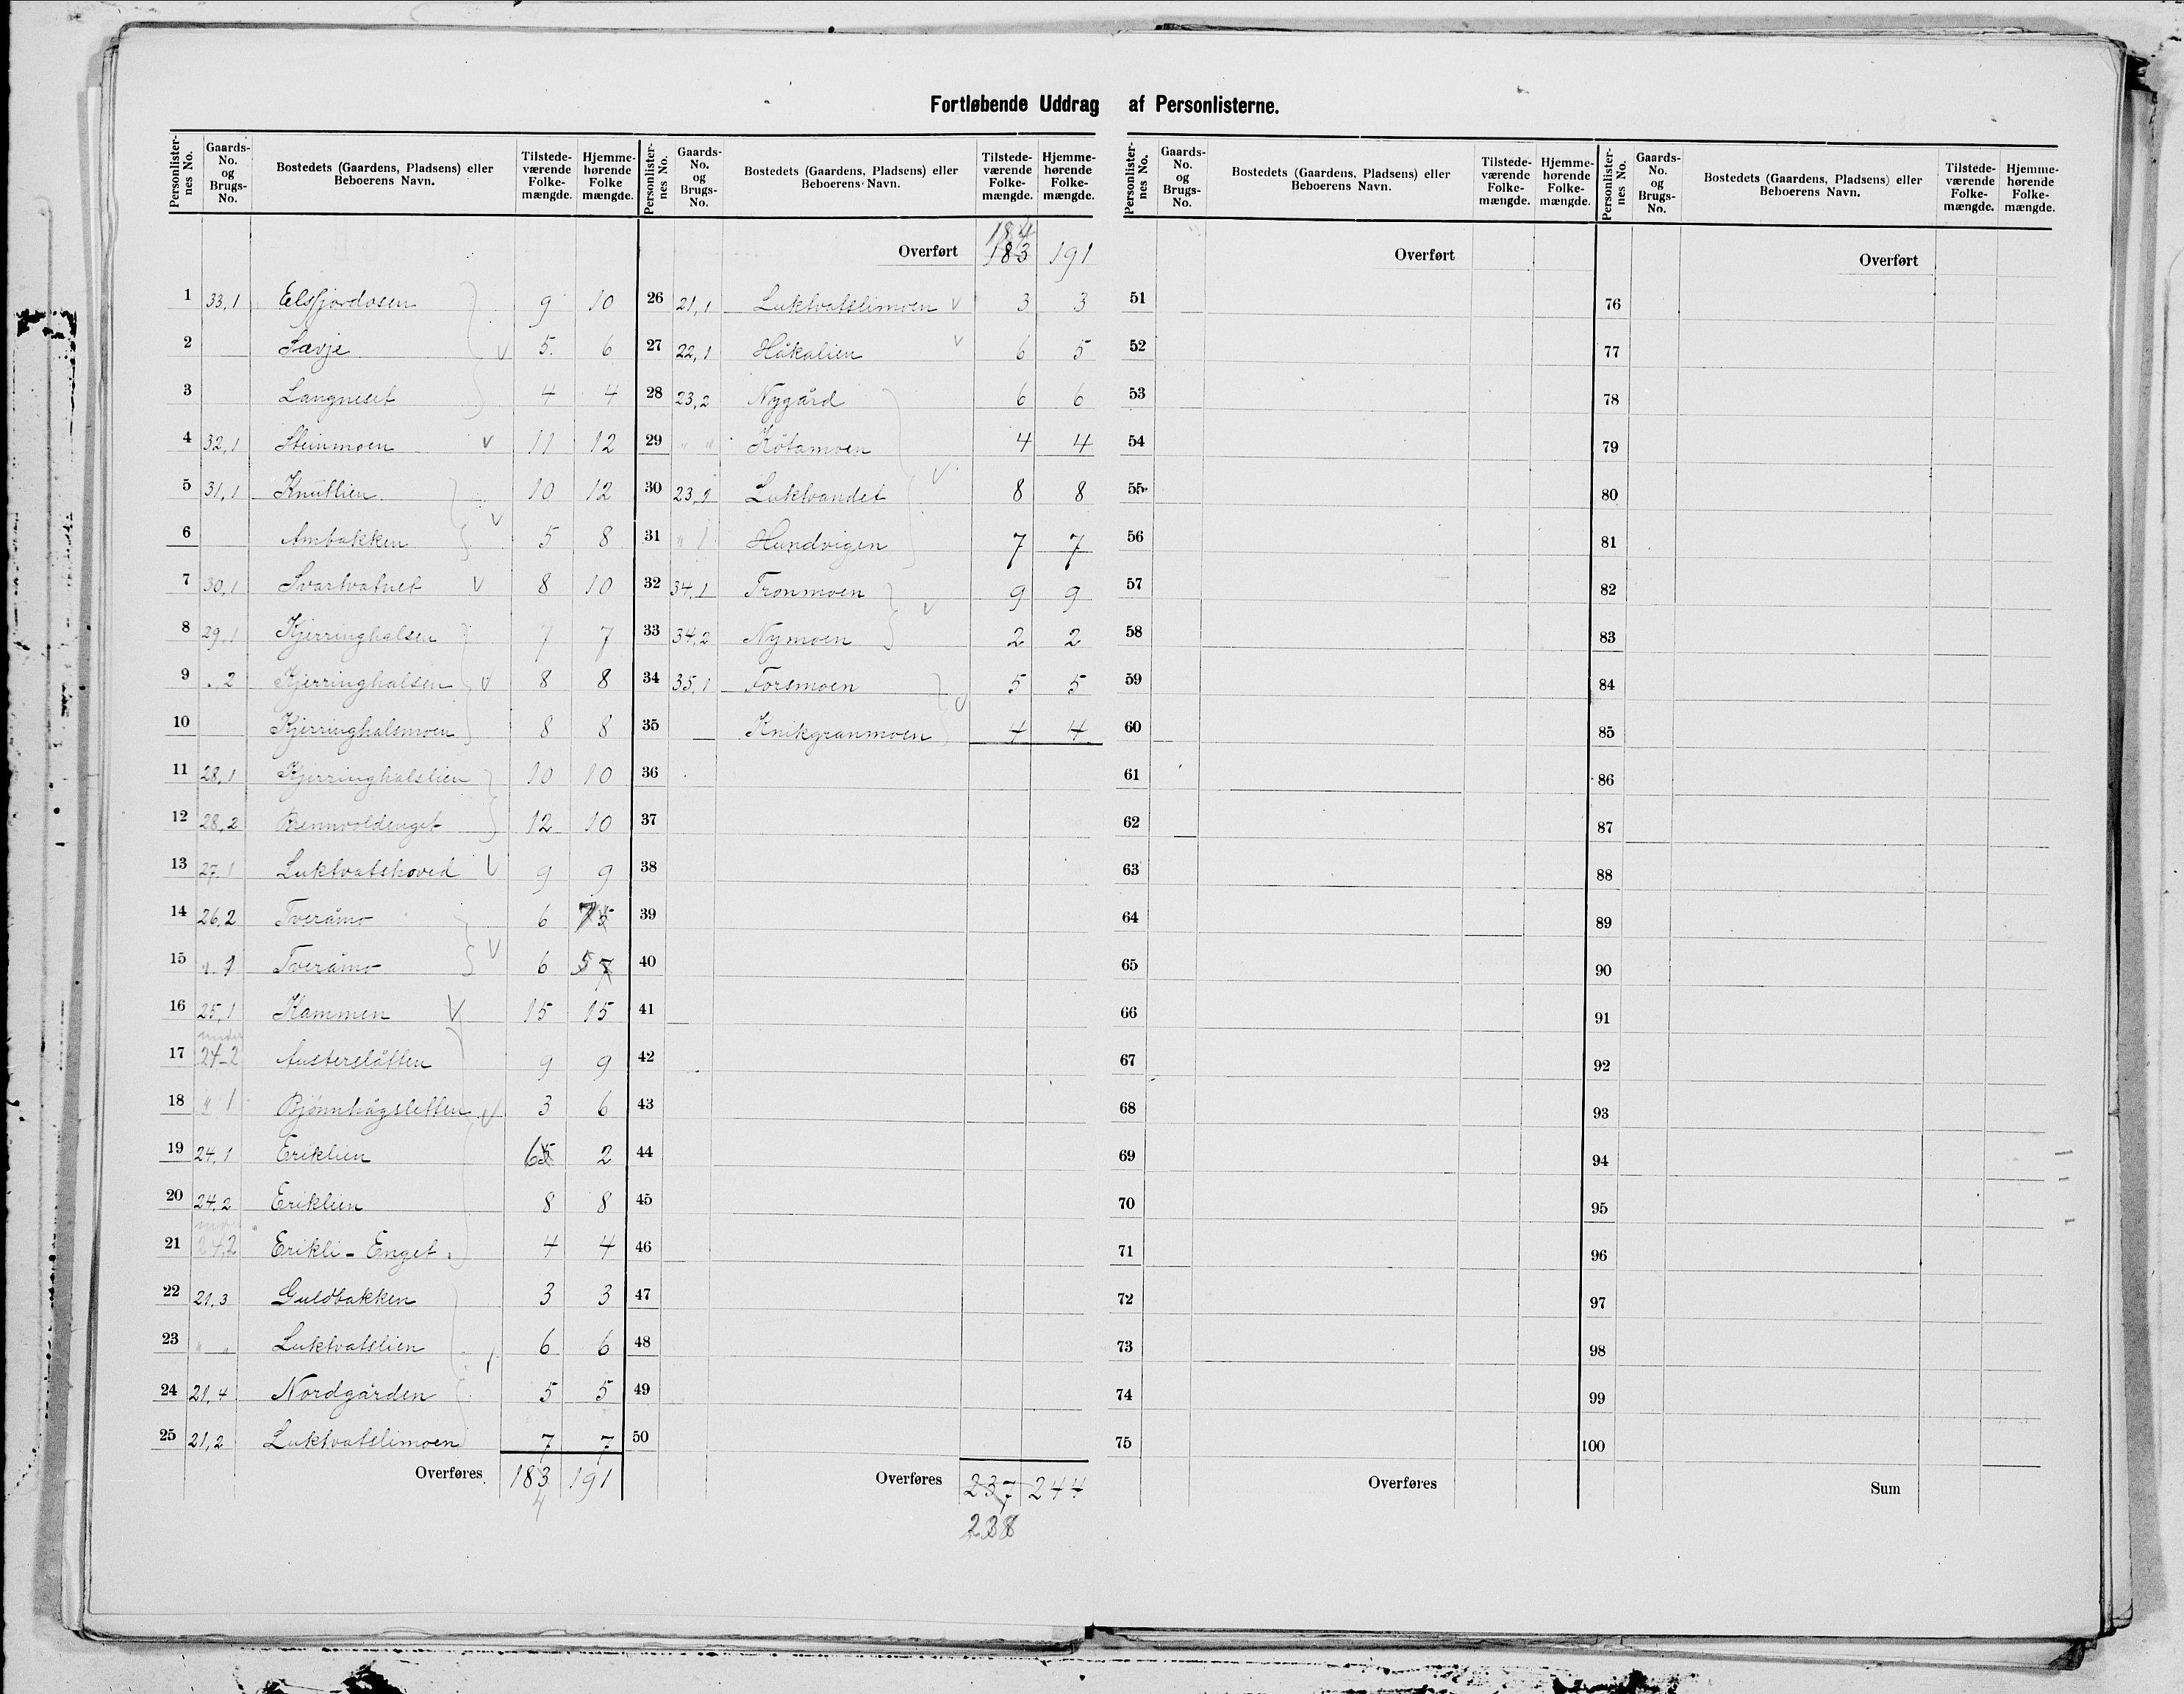 Fortløbende Uddrag af Personlisterne.
Personlisternes No. Gaards-No. og Brugs-No. Bostedets (Gaardens, Pladsens) eller Beboerens Navn. Tilstedeværende Folkemængde. Hjemmehørende Folke mængde.
1 33,1 Elsfjordosen 9 10
2 Sævje 5 6
3 Langneset 4 4
4 32,1 Steinmoen v 11 12
5 31,1 Knutlien 10 12
6 Ambakken v 5 8
7 30,1 Svartvatnet v 8 10
8 29,1 Kjerringhalsen 7 7
9 „ 2 Kjerringhalsen v 8 8
10 Kjerringhalsmoen 8 8
11 28,1 Kjerringhalslien 10 10
12 28,2 Brennvoldenget 12 10
13 27,1 Luktvatshoved v 9 9
14 26,2 Tveråmo 6 7 5
15 „ 1 Tveråmo v 6 5 7
16 25,1 Kammen v 15 15
17 under 24-2 Austerslåtten 9 9
18 „ 1 Bjønnhågsletten v 3 6
19 24,1 Eriklien 6 5 2
20 24,2 Eriklien 8 8
21 24,2 Erikli-Enget 4 4
22 21,3 Guldbakken 3 3
23 „ „ Luktvatslien 6 6
24 21,4 Nordgården 5 5
25 21,2 Luktvatslimoen 7 7
Overføres 183 191
4
Personlisternes No. Gaards-No. og Brugs-No. Bostedets (Gaardens, Pladsens) eller Beboerens Navn. Tilstedeværende Folkemængde. Hjemmehørende Folkemængde.
184
Overført 183 191
26 21,1 Luktvatslimoen v 3 3
27 22,1 Håkalien v 6 5
28 23,2 Nygård 6 6
29 „ „ Kåtamoen 4 4
30 23,1 Luktvandet v 8 8
31 „ 1 Hundvigen 7 7
32 34,1 Tronmoen 9 9
33 34,2 Nymoen v 2 2
34 35,1 Forsmoen v 5 5
35 Knikgranmoen 4 4
36
37
38
39
40
41
42
43
44
45
46
47
48
49
50
Overføres 237 244
238
Personlisternes No. Gaards-No. og Brugs-No. Bostedets (Gaardens, Pladsens) eller Beboerens Navn. Tilstedeværende Folkemængde. Hjemmehørende Folkemængde.
Overført
51
52
53
54
55
56
57
58
59
60
61
62
63
64
65
66
67
68
69
70
71
72
73
74
75
Overføres
Personlisternes No. Gaards-No. og Brugs-No. Bostedets (Gaardens, Pladsens) eller Beboerens Navn. Tilstedeværende Folkemængde. Hjemmehørende Folkemængde.
Overført
76
77
78
79
80
81
82
83
84
85
86
87
88
89
90
91
92
93
94
95
96
97
98
99
100
Sum